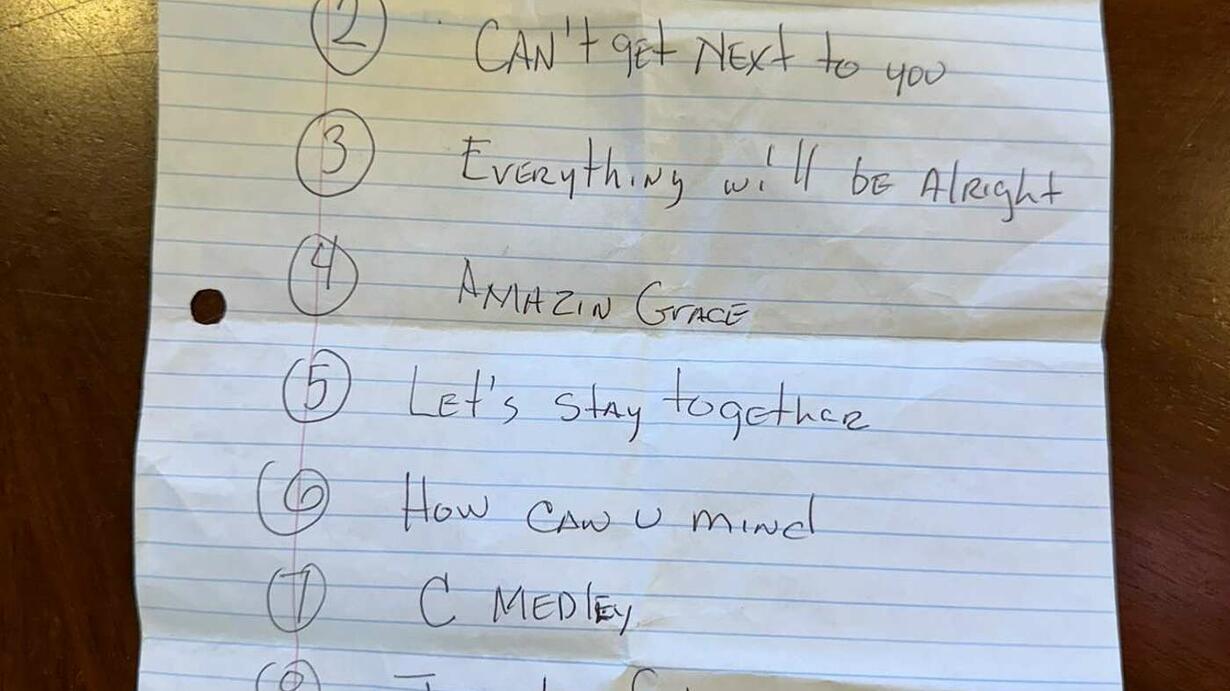 2 CAN't get NEXt to you
3 EVERYthiNg will bE AlRight
4 AMAZIN GrACE
5 LEt's StAy togEthER
6 How CAN U MINd
7 C MEDlEy
8